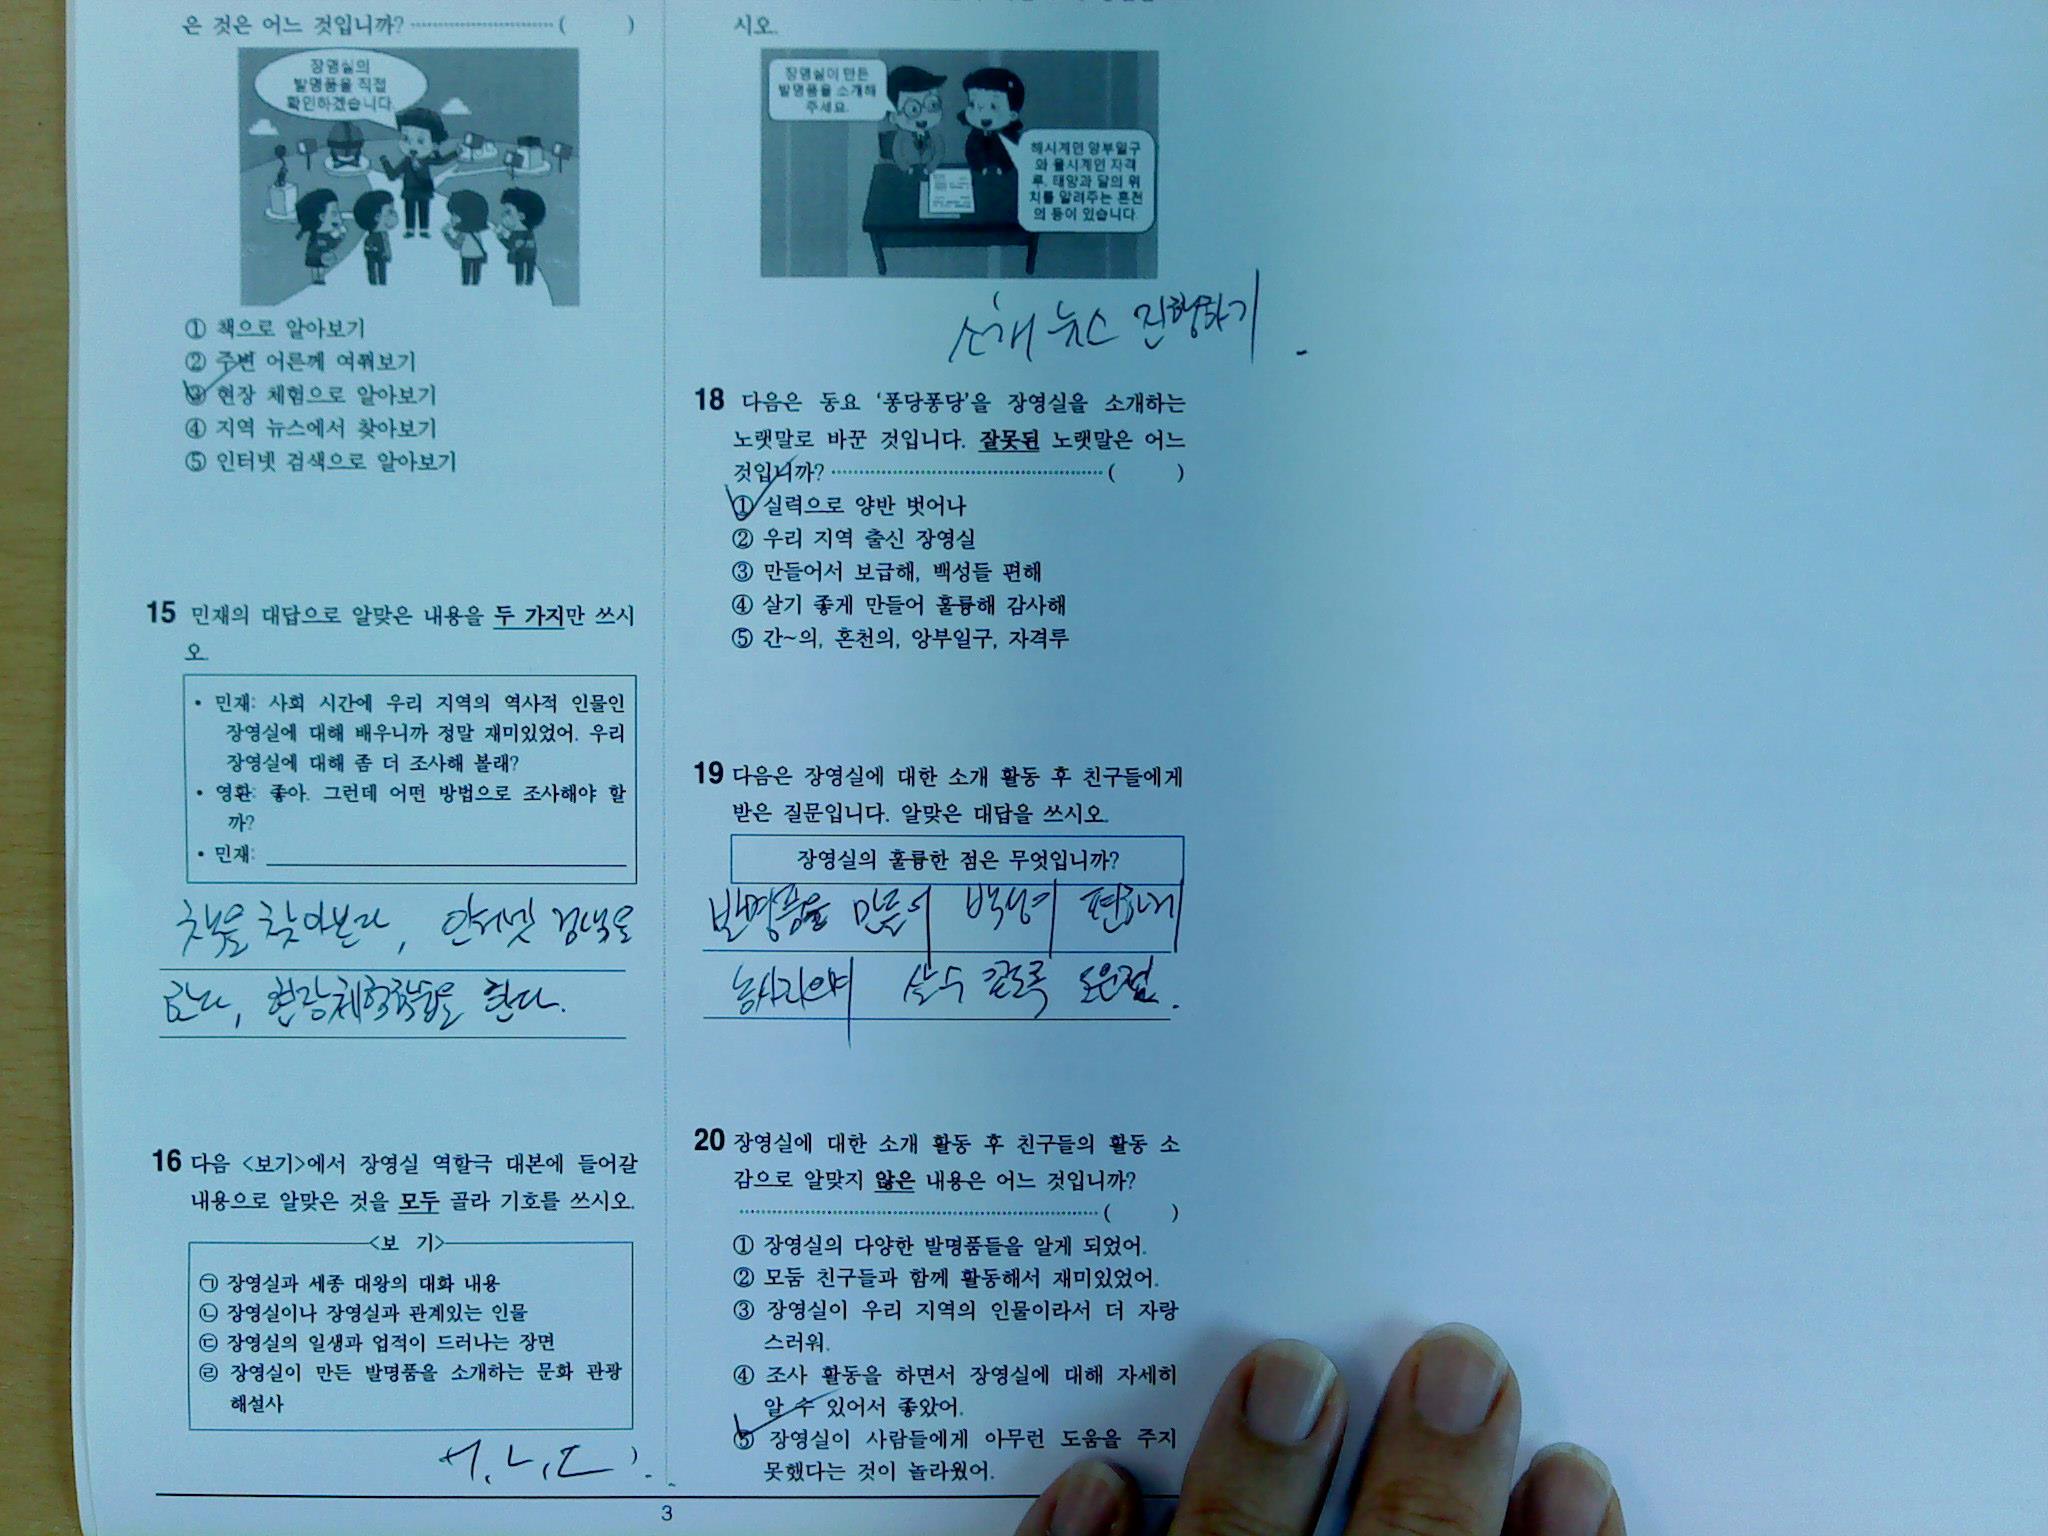 은 것은 어느 것입니까? ( )
장영실의
발명품을 직접
확인하겠습니다.
① 책으로 알아보기
② 주변 어른께 여쭤보기
③ 현장 체험으로 알아보기
④ 지역 뉴스에서 찾아보기
⑤ 인터넷 검색으로 알아보기
15 민재의 대답으로 알맞은 내용을 두 가지만 쓰시
오.
• 민재: 사회 시간에 우리 지역의 역사적 인물인
장영실에 대해 배우니까 정말 재미있었어. 우리
장영실에 대해 좀 더 조사해 볼래?
• 영환: 좋아. 그런데 어떤 방법으로 조사해야 할
까?
• 민재:
책을 찾아본다, 인터넷 검색을
한다, 현장체험학습을 한다.
16 다음 <보기>에서 장영실 역할극 대본에 들어갈
내용으로 알맞은 것을 모두 골라 기호를 쓰시오.
<보 기>
㉠ 장영실과 세종 대왕의 대화 내용
㉡ 장영실이나 장영실과 관계있는 인물
㉢ 장영실의 일생과 업적이 드러나는 장면
㉣ 장영실이 만든 발명품을 소개하는 문화 관광
해설사
ㄱ, ㄴ, ㄷ
시오.
장영실이 만든
발명품을 소개해
주세요.
해시계인 앙부일구
와 물시계인 자격
루, 태양과 달의 위
치를 알려주는 혼천
의 등이 있습니다.
소개 뉴스 진행하기.
18 다음은 동요 ‘퐁당퐁당’을 장영실을 소개하는
노랫말로 바꾼 것입니다. 잘못된 노랫말은 어느
것입니까? ( )
① 실력으로 양반 벗어나
② 우리 지역 출신 장영실
③ 만들어서 보급해, 백성들 편해
④ 살기 좋게 만들어 훌륭해 감사해
⑤ 간~의, 혼천의, 앙부일구, 자격루
19 다음은 장영실에 대한 소개 활동 후 친구들에게
받은 질문입니다. 알맞은 대답을 쓰시오.
장영실의 훌륭한 점은 무엇입니까?
발명품을 만들어 백성이 편하게
농사지으며 살 수 있도록 도운점.
20 장영실에 대한 소개 활동 후 친구들의 활동 소
감으로 알맞지 않은 내용은 어느 것입니까?
( )
① 장영실의 다양한 발명품들을 알게 되었어.
② 모둠 친구들과 함께 활동해서 재미있었어.
③ 장영실이 우리 지역의 인물이라서 더 자랑
스러워.
④ 조사 활동을 하면서 장영실에 대해 자세히
알 수 있어서 좋았어.
⑤ 장영실이 사람들에게 아무런 도움을 주지
못했다는 것이 놀라웠어.
3